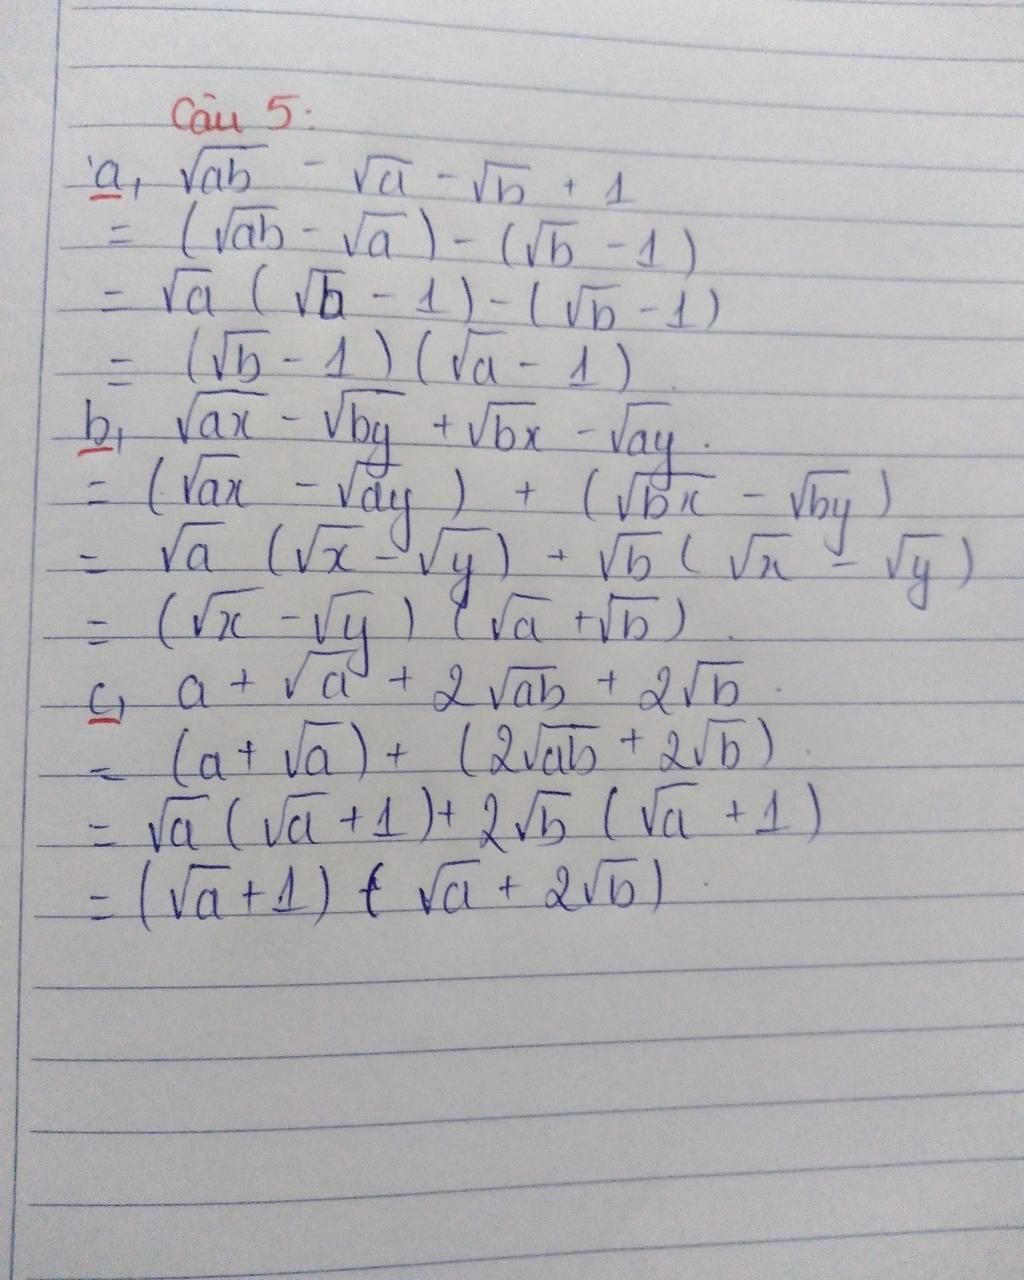 Câu 5:
a, √ab - √a - √b + 1
= (√ab - √a) - (√b - 1)
= √a (√b - 1) - (√b - 1)
= (√b - 1) (√a - 1).
b, √ax - √by + √bx - √ay.
= (√ax - √ay) + (√bx - √by)
= √a (√x - √y) + √b (√x - √y)
= (√x - √y) (√a + √b).
c, a + √a + 2√ab + 2√b.
= (a + √a) + (2√ab + 2√b).
= √a (√a + 1) + 2√b (√a + 1)
= (√a + 1) (√a + 2√b).